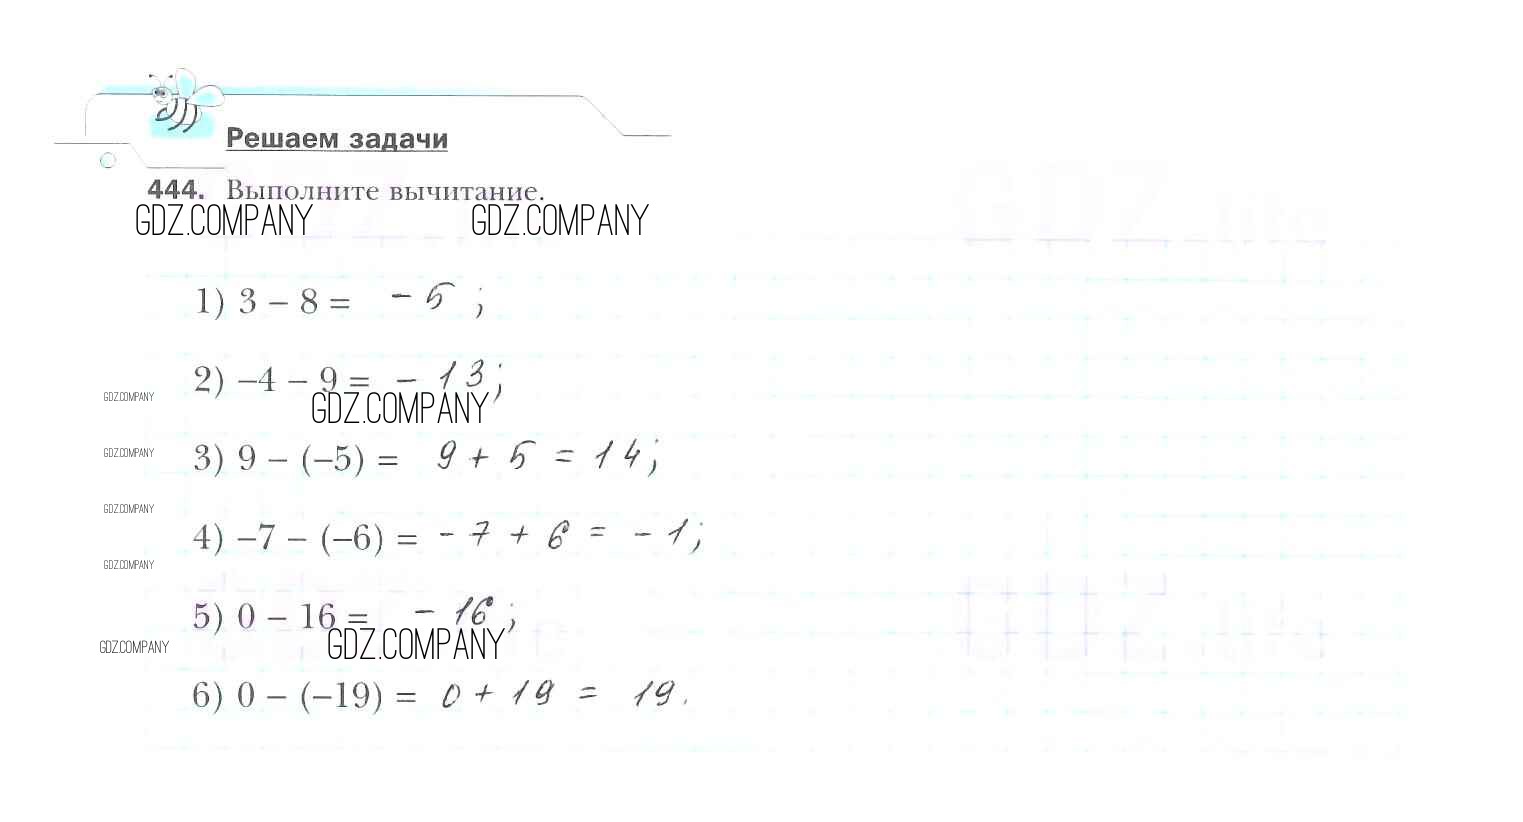 Решаем задачи
444. Выполните вычитание.
GDZ.COMPANY GDZ.COMPANY
1) 3 – 8 = - 5 ;
2) –4 – 9 = - 13;
GDZ.COMPANY GDZ.COMPANY
GDZ.COMPANY
3) 9 – (–5) = 9 + 5 = 14;
GDZ.COMPANY
4) –7 – (–6) = - 7 + 6 = - 1;
GDZ.COMPANY
5) 0 – 16 = - 16;
GDZ.COMPANY GDZ.COMPANY
6) 0 – (–19) = 0 + 19 = 19.